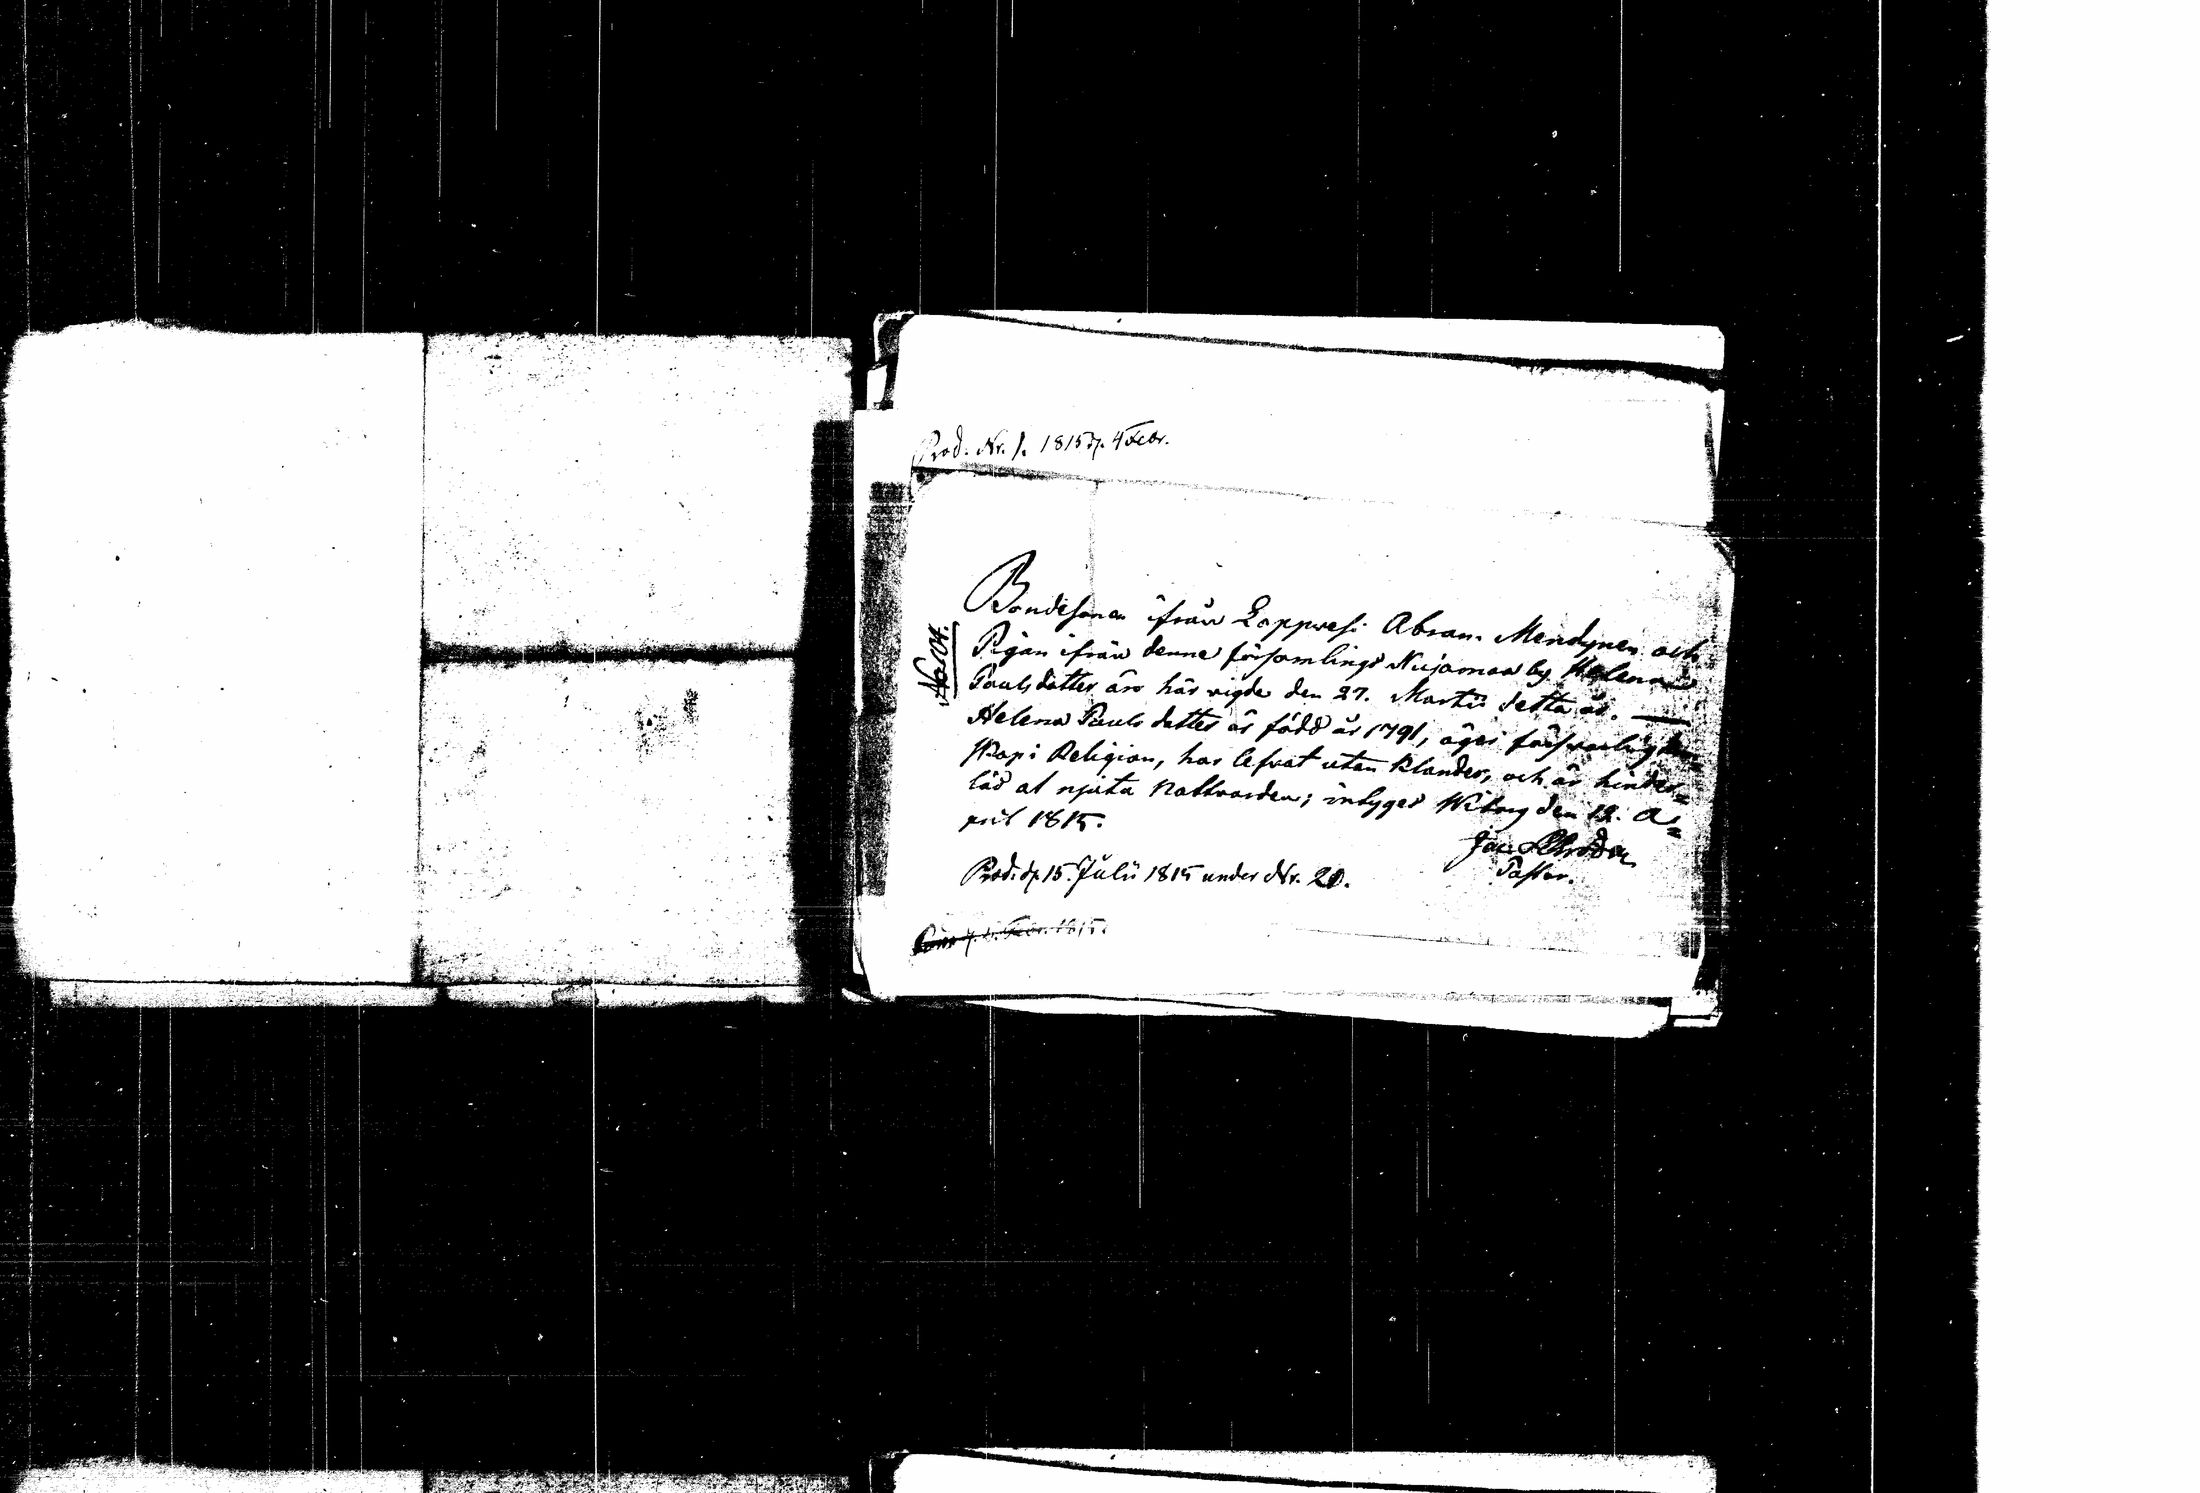 Prod. Nr. 1. 1815 d. 4 Febr.
No 104.
Bondesonen ifrån Lappvesi Abram Mendynen och
Pigan ifrån denne församlings Nujamaa by Helena
Paulsdotter äro här vigde den 27. Martii detta år. —
Helena Pauls dotter är född år 1791, äger försvarlig kun-
skap i Religion, har lefvat utan klander, och är hinder-
lös at njuta Nattvarden; intygas Wiborg den 12. A-
pril 1815.
Pastor.
Prod. d. 15. Julii 1815 under Nr. 20.
Febr. 1815.